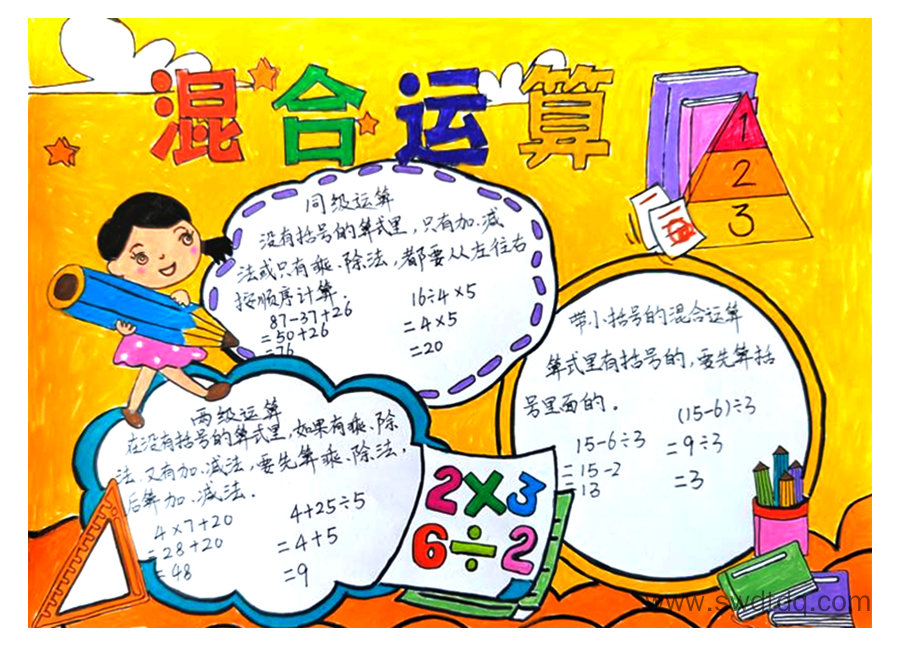 混合运算
1
2
3
同级运算
没有括号的算式里,只有加、减
法或只有乘、除法,都要从左往右
按顺序计算.
87-37+26
=50+26
=76
16÷4×5
=4×5
=20
带小括号的混合运算
算式里有括号的,要先算括
号里面的.
15-6÷3
=15-2
=13
(15-6)÷3
=9÷3
=3
两级运算
在没有括号的算式里,如果有乘、除
法,又有加、减法,要先算乘、除法,
后算加、减法.
4×7+20
=28+20
=48
4+25÷5
=4+5
=9
2×3
6÷2
www.swdtdq.com